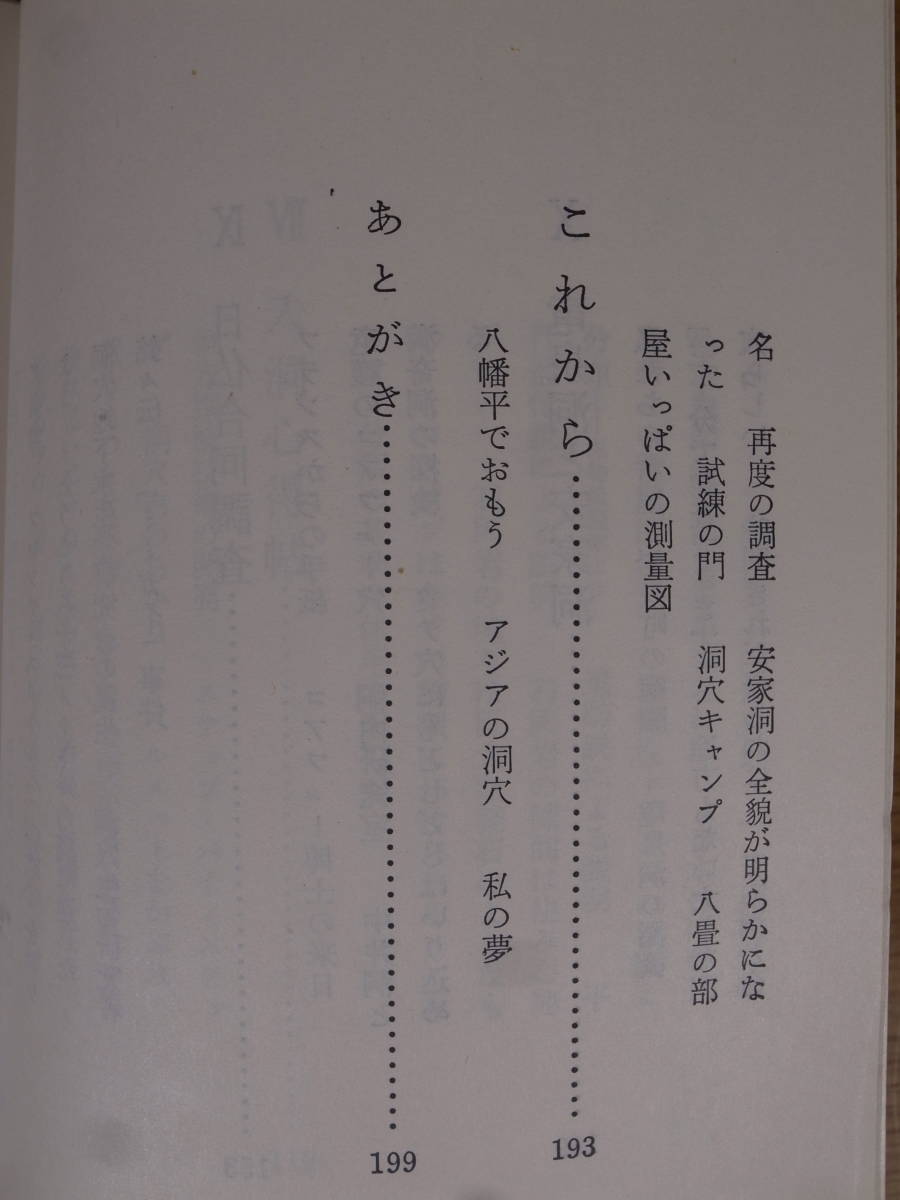 名　再度の調査　安家洞の全貌が明らかにな
った　試練の門　洞穴キャンプ　八畳の部
屋いっぱいの測量図
これから……………………………193
八幡平でおもう　アジアの洞穴　私の夢
あとがき……………………………199